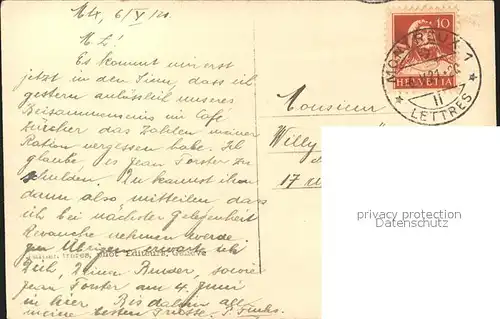 Mtx, 6/V/21
M. L.!
Es kommt mir erst
jetzt in den Sinn, dass ich
gestern anlässlich unseres
Beisammenseins im Café
Zürcher das Zahlen meiner
Ration vergessen habe. Ich
glaube, es Jean Forster zu
schulden. Du kannst ihm
dann also mitteilen, dass
ich bei nächster Gelegenheit
Revanche nehmen werde.
Im Übrigen erwarte ich
Dich, Deinen Bruder, sowie
Jean Forster am 4. Juni
in hier. Bis dahin alle
meine besten Grüsse.
Genève
Monsieur
Willy
17
10
HELVETIA
MONTREUX 1
II
* LETTRES *
privacy protection
watermark